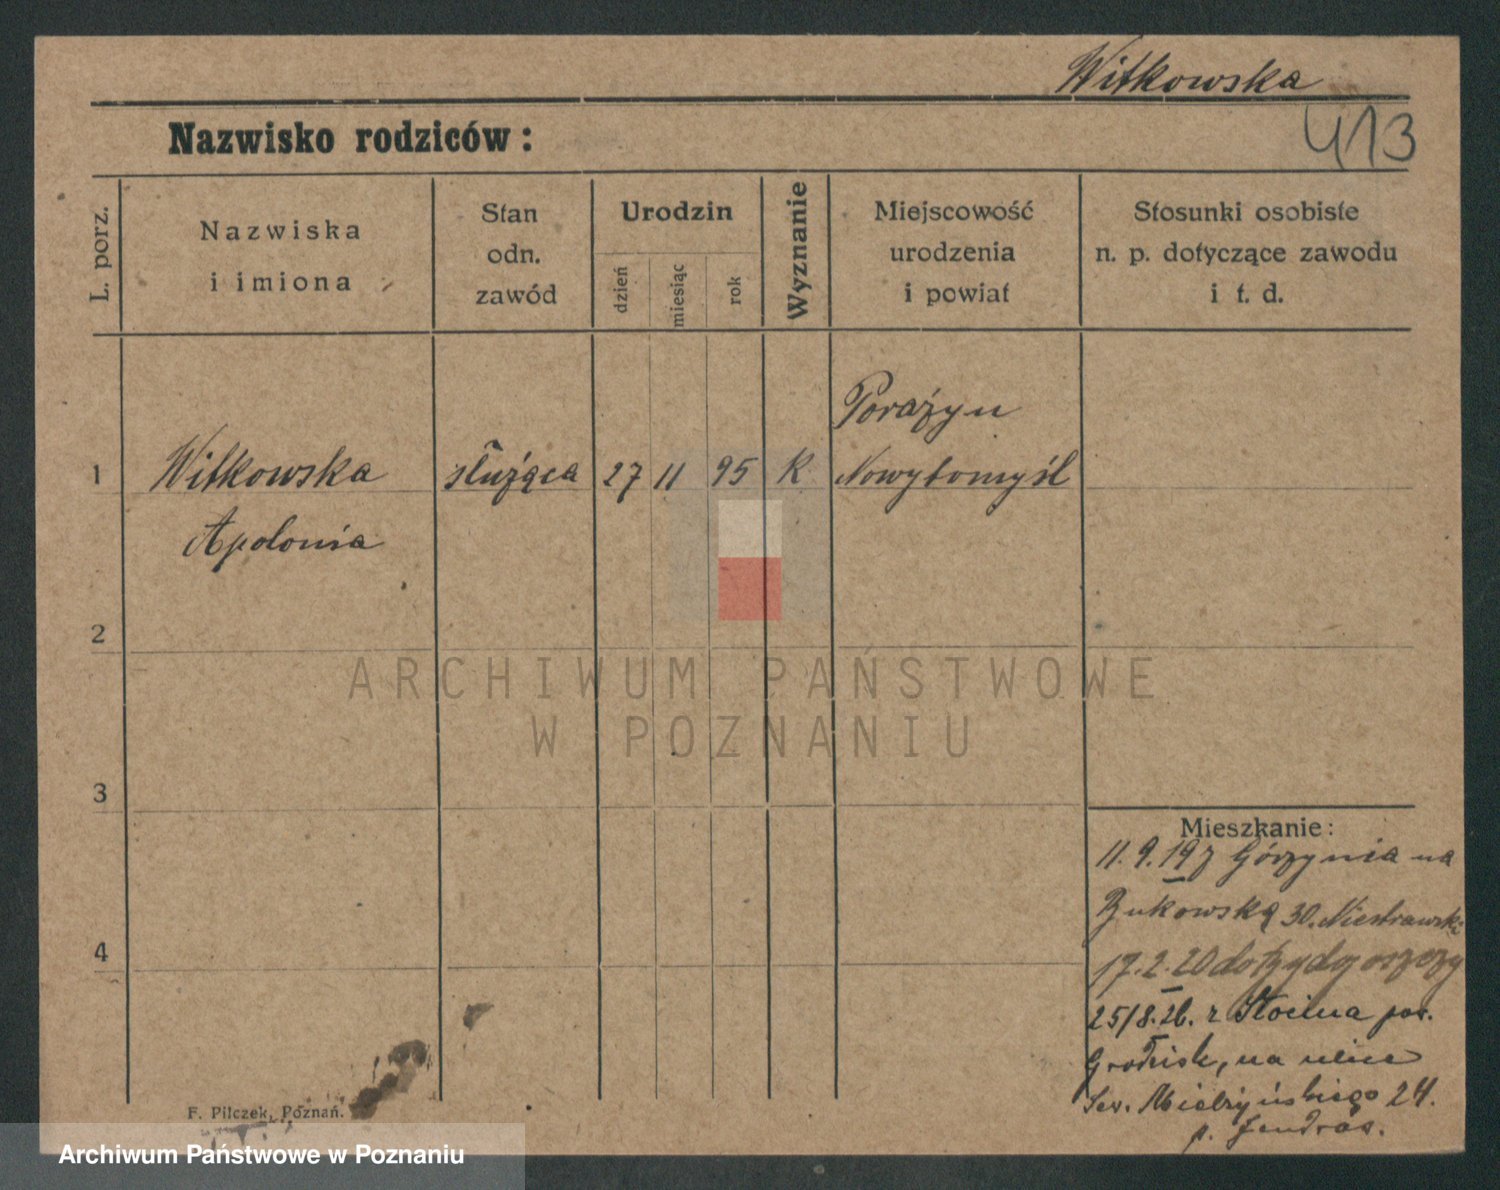 Witkowska
413
Nazwisko rodziców:
L. porz.
Nazwiska
i imiona
Stan
odn.
zawód
Urodzin
dzień
miesiąc
rok
Wyznanie
Miejscowość
urodzenia
i powiat
Stosunki osobiste
n. p. dotyczące zawodu
i t. d.
Porażyn
1 Witkowska służąca 27 11 95 K Nowytomyśl
Apolonia
2
3
4
Mieszkanie:
11.9.19 z Górzynia na
Bukowską 30. Niestrawski
17.2.20 do Bydgoszczy
25/8.26. z Słocina pow.
Grodzisk, na ulicę
Sew. Mielżyńskiego 24.
p. Jendraś.
F. Pilczek, Poznań.
ARCHIWUM PAŃSTWOWE
W POZNANIU
Archiwum Państwowe w Poznaniu